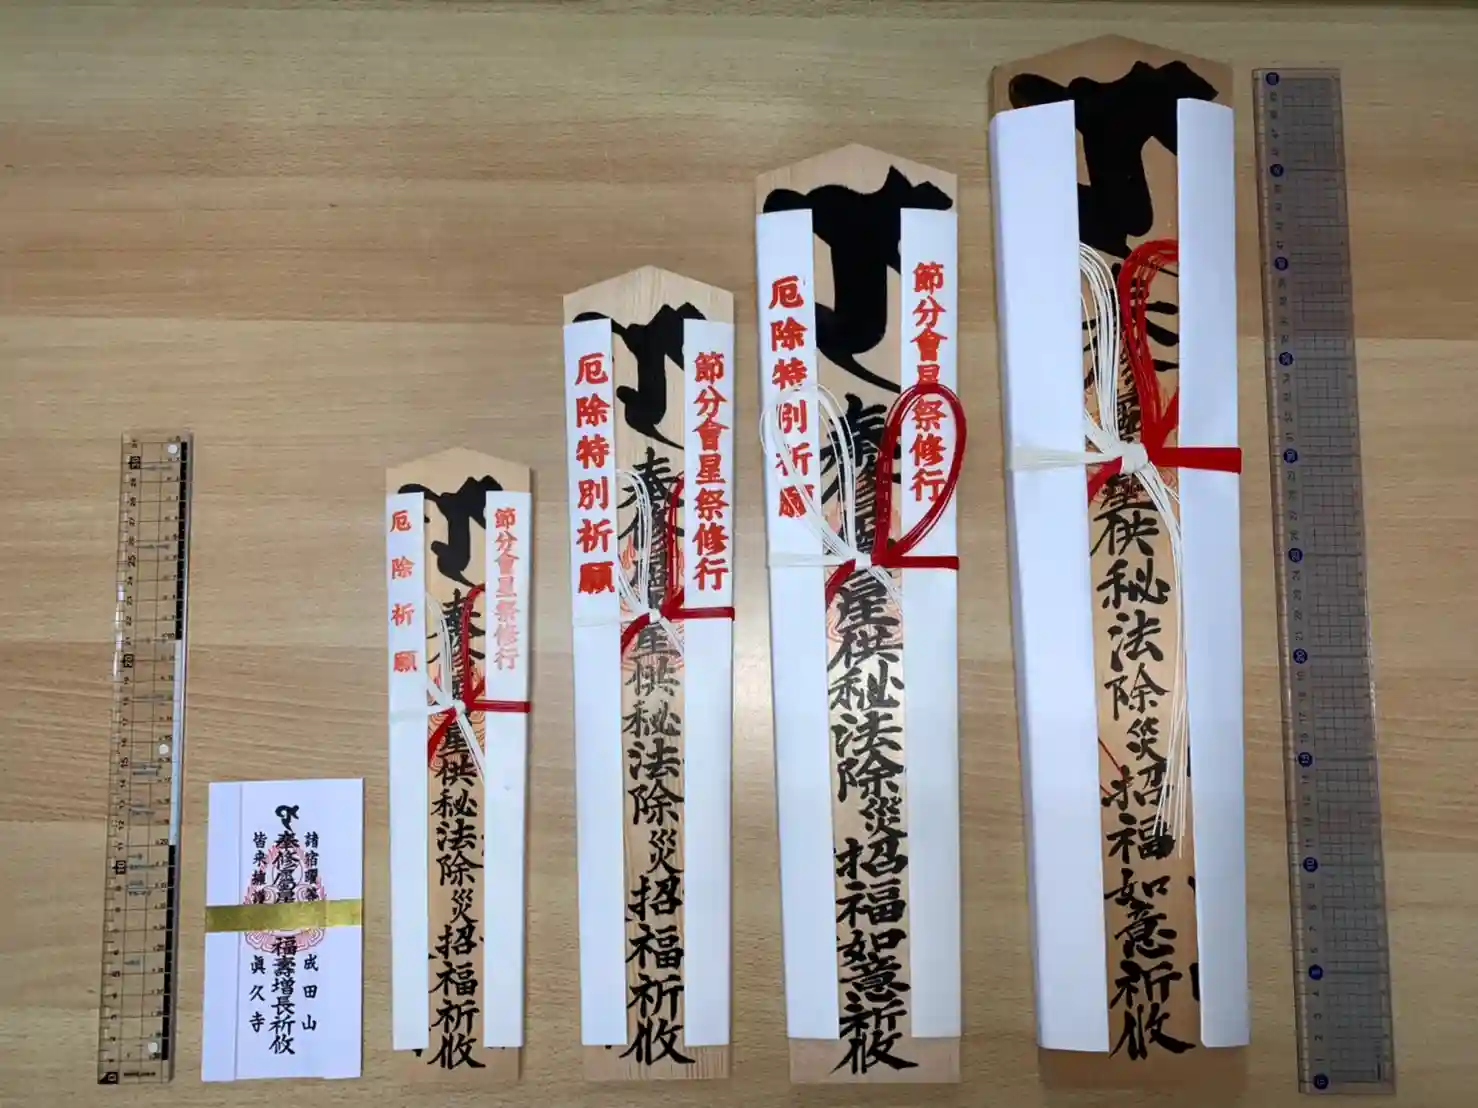 諸宿曜等
成田山
奉修
福壽増長祈攸
皆来擁護
眞久寺
節分會星祭修行
奉修
星供秘法除災招福祈攸
厄除祈願
節分會星祭修行
奉修
星供秘法除災招福祈攸
厄除特別祈願
節分會星祭修行
奉修
星供秘法除災招福如意祈攸
厄除特別祈願
星供秘法除災招福如意祈攸